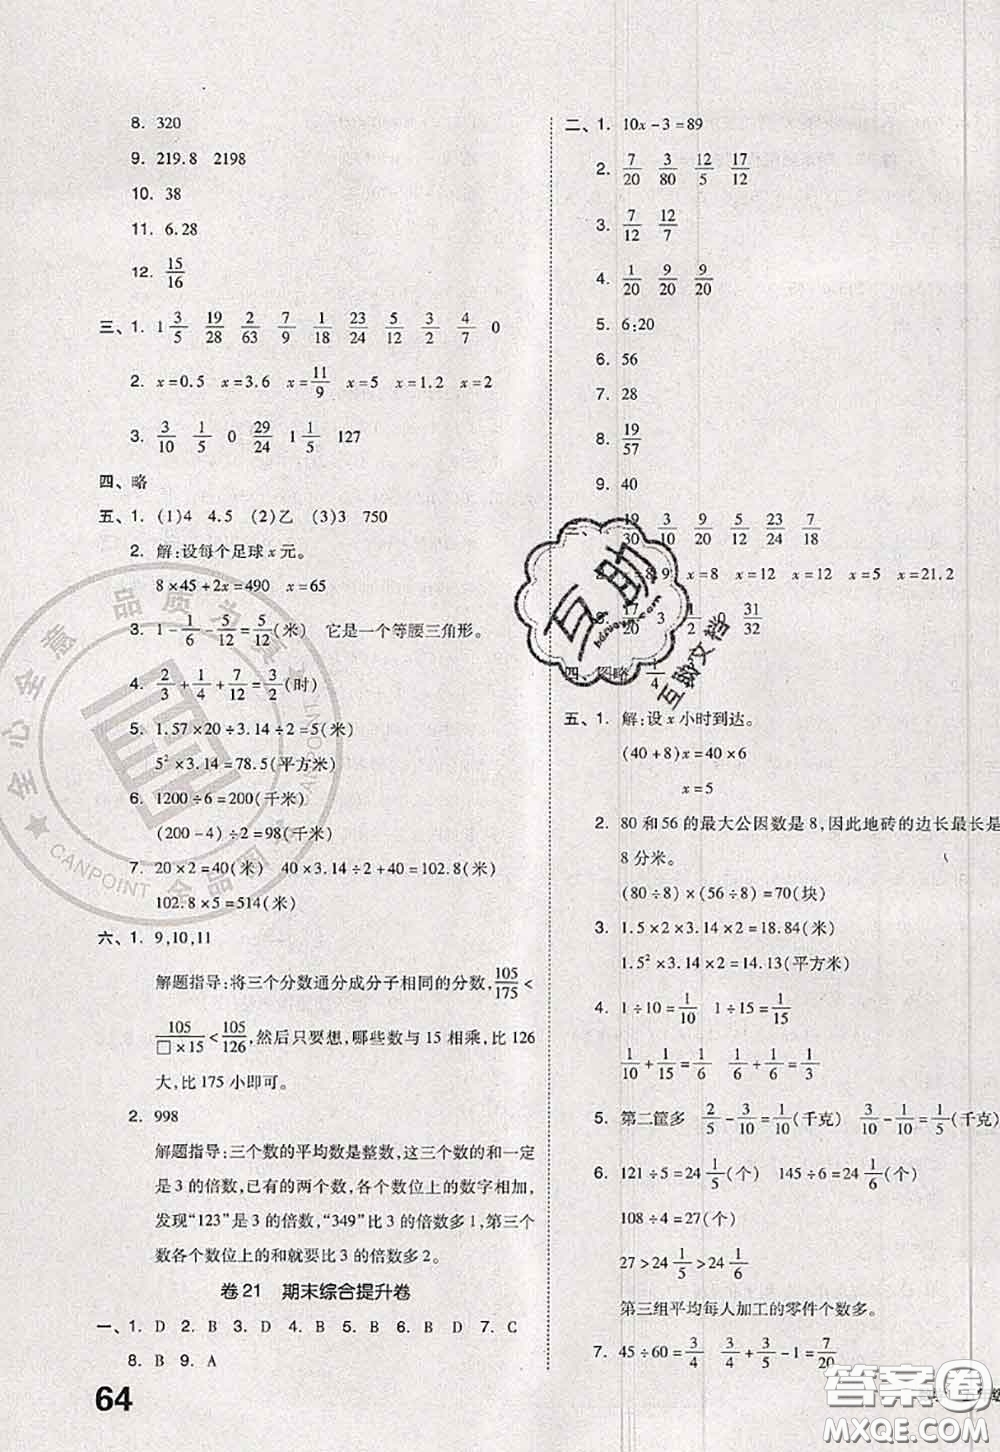 8. 320
9. 219.8 2198
10. 38
11. 6.28
12. 15/16
三、1. 1 3/5 19/28 2/63 7/9 1/18 23/24 5/24 3/2 4/7 0
2. x=0.5 x=3.6 x=11/9 x=5 x=1.2 x=2
3. 3/10 1/5 0 29/24 1 1/5 127
四、略
五、1. (1)4 4.5 (2)乙 (3)3 750
2. 解:设每个足球 x 元。
8×45+2x=490 x=65
3. 1-5/12-1/6=5/12(米) 它是一个等腰三角形。
4. 2/3+1/4+7/12= (时)
5. 1.57×20÷3.14÷2=5(米)
5²×3.14=78.5(平方米)
6. 1200÷6=200(千米)
(200-4)÷2=98(千米)
7. 20×2=40(米) 40×3.14÷2+40=102.8(米)
102.8×5=514(米)
六、1. 9,10,11
解题指导:将三个分数通分成分子相同的分数,105/175<
105/□×15<105/126,然后只要想,哪些数与 15 相乘,比 126
大,比 175 小即可。
2. 998
解题指导:三个数的平均数是整数,这三个数的和一定
是 3 的倍数,已有的两个数,各个数位上的数字相加,
发现“123”是 3 的倍数,“349”比 3 的倍数多 1,第三个
数各个数位上的和就要比 3 的倍数多 2。
卷 21 期末综合提升卷
一、1. D 2. B 3. D 4. B 5. B 6. D 7. C
8. B 9. A
64
二、1. 10x-3=89
2. 7/20 3/80 12/5 17/12
3. 7/12 12/7
4. 1/20 9/20 9/20
5. 6;20
6. 56
7. 28
8. 19/57
9. 40
19/30 3/10 9/20 5/12 23/24 7/18
8.9 x=8 x=12 x=12 x=21.2
17/20 3 1/2 0 31/32
四、图略 1/4
五、1. 解:设 x 小时到达。
(40+8)x=40×6
x=5
2. 80 和 56 的最大公因数是 8,因此地砖的边长最长是
8 分米。
(80÷8)×(56÷8)=70(块)
3. 1.5×2×3.14×2=18.84(米)
1.5²×3.14×2=14.13(平方米)
4. 1÷10=1/10 1÷15=1/15
1/10+1/15=1/6 1/6÷1/2=1/3
5. 第二筐多 2/5-3/10=1/10(千克) 3/10-1/10=1/5(千克)
6. 121÷5=24 1/5(个) 145÷6=24 1/6(个)
108÷4=27(个)
27>24 1/5>24 1/6
第三组平均每人加工的零件个数多。
7. 45÷60=3/4 3/4+3/5-1=7/20
互助
hdzuoye.com
互助文档
全心全意 品质为
CANPOINT
全品
答案圈
MXQE.COM